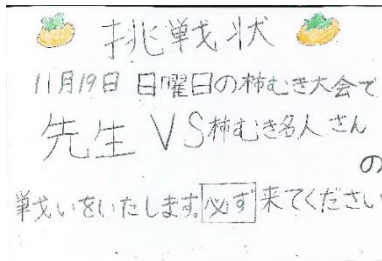 挑戦状
11月19日 日曜日の柿むき大会で
先生 VS 柿むき名人 さん
の
戦いをいたします。必ず来てください